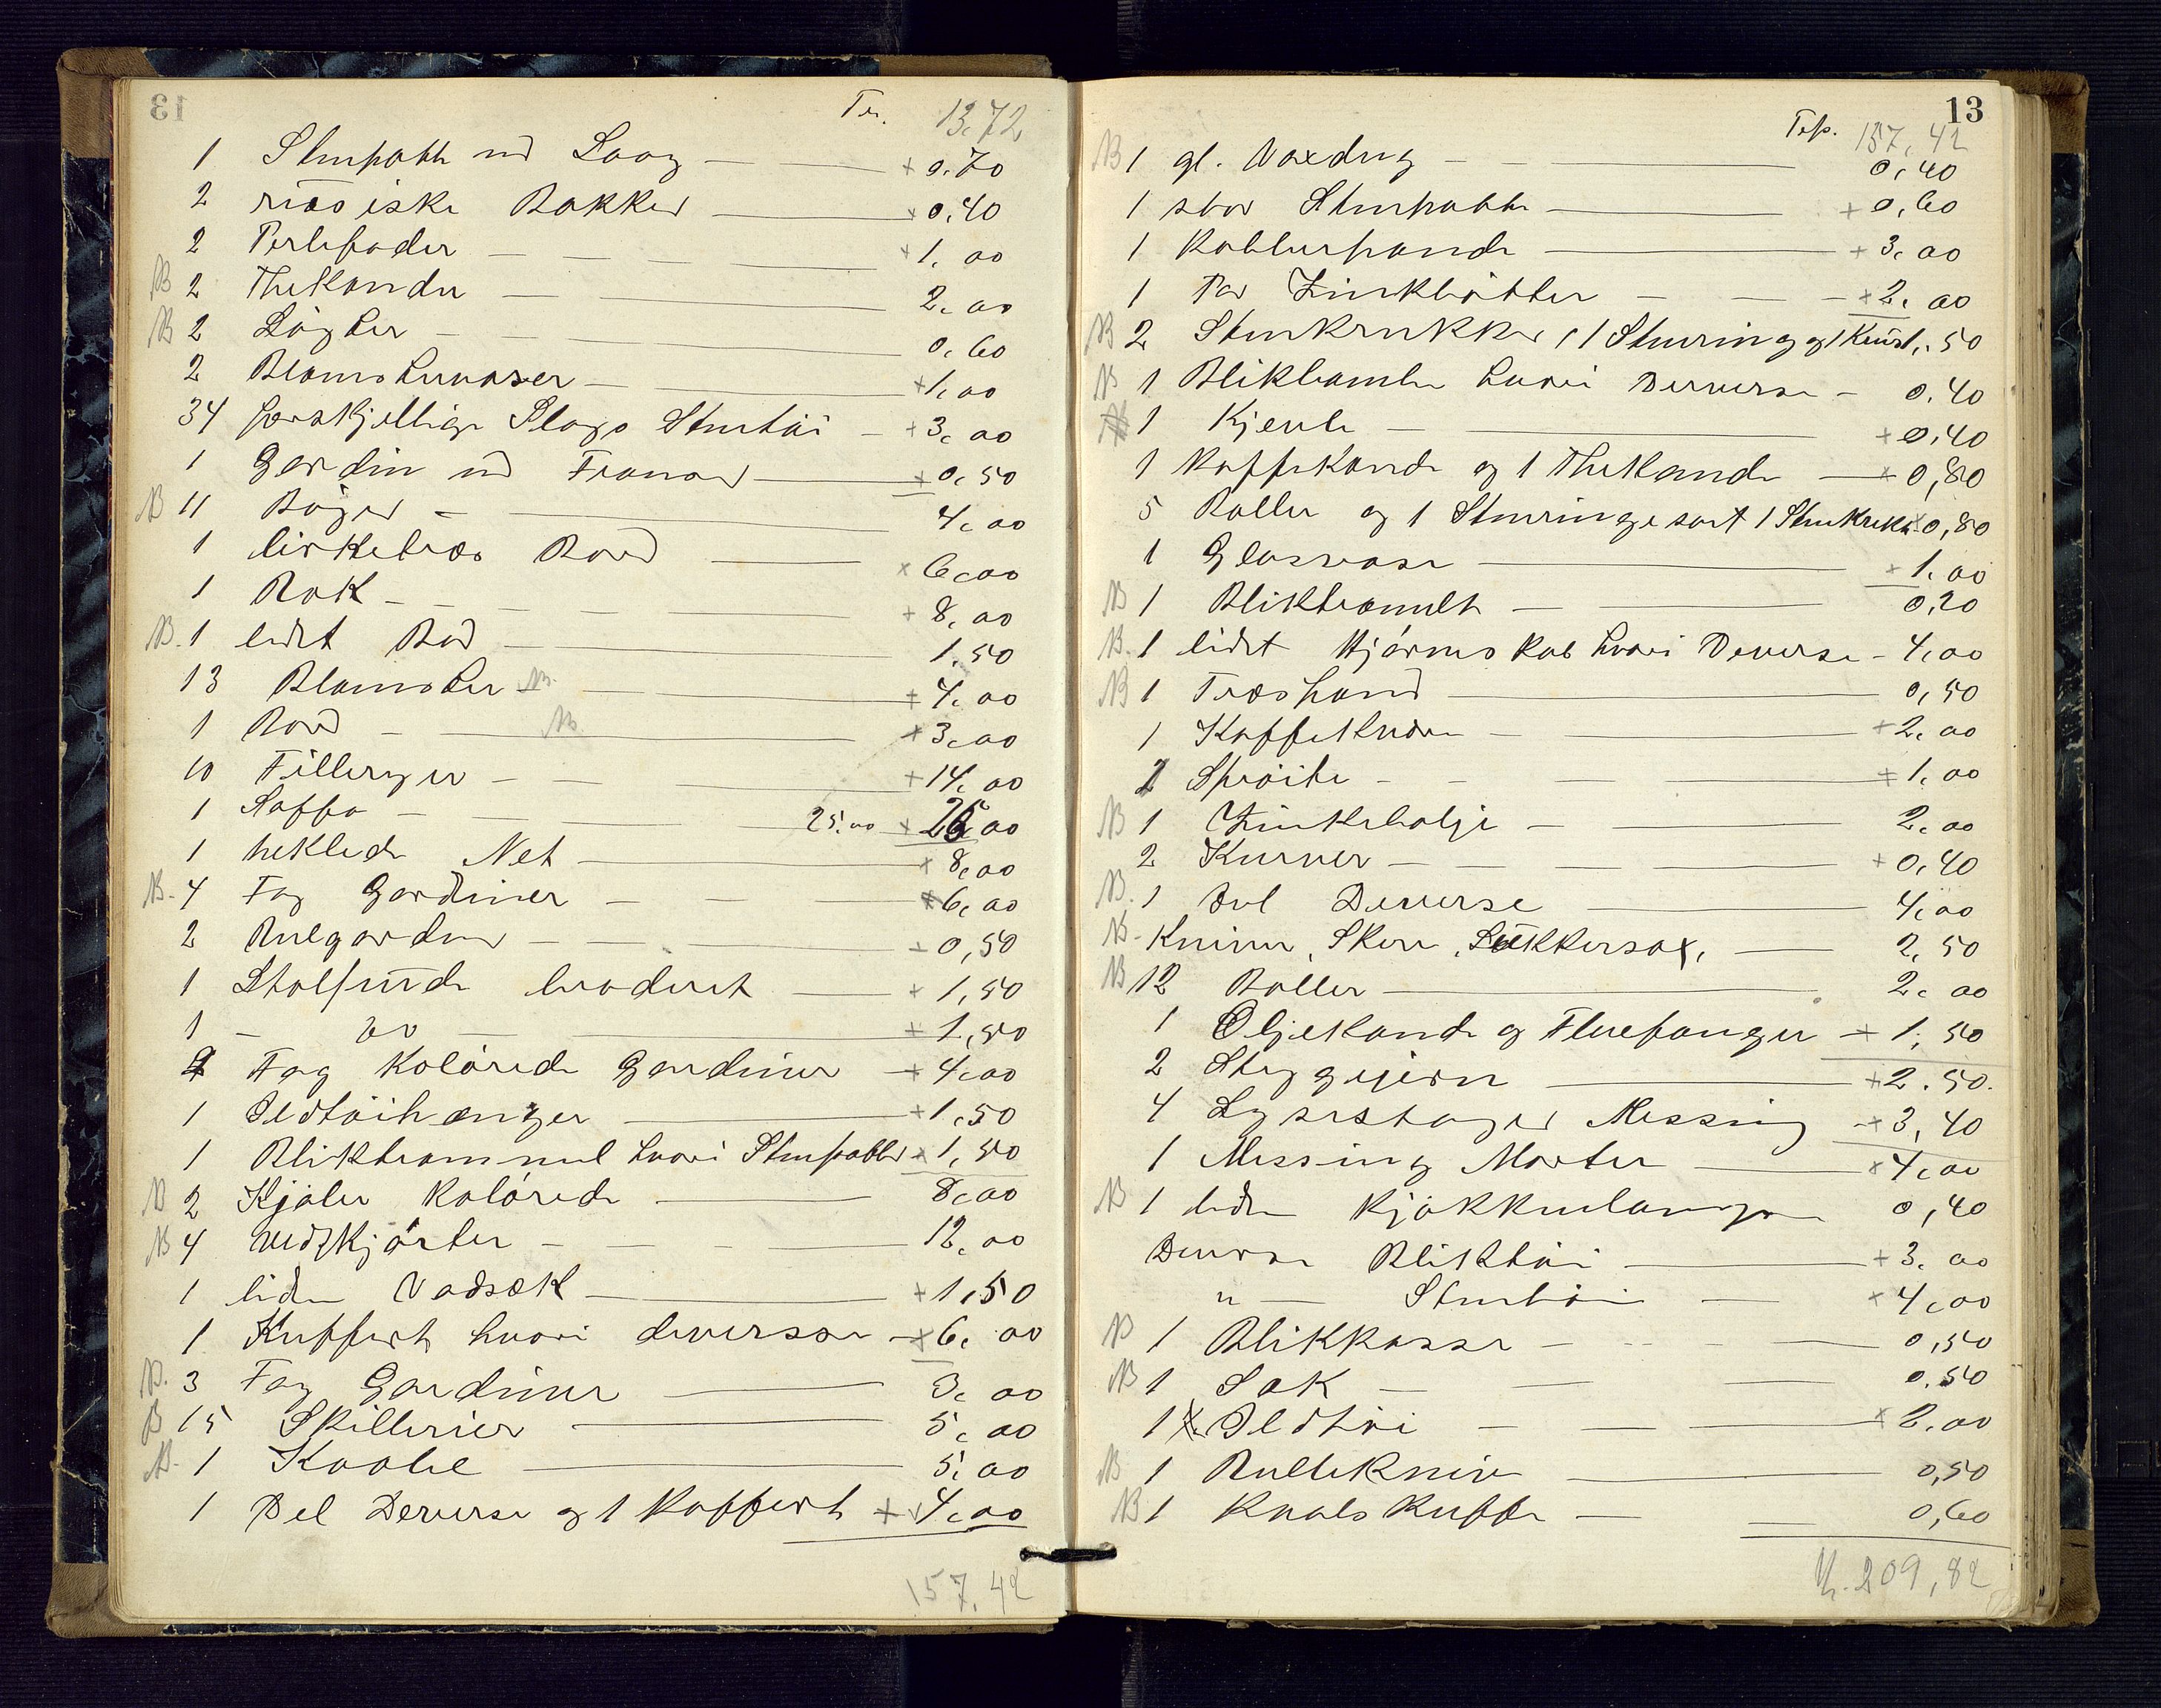 Tr. 13,72
1 Stenpotte md Laag — + 0.70
2 russiske Bakker — + 0,40
2 Perlefader — + 1,00
NB 2 Thekander — 2,00
NB 2 Løgter — 0,60
2 Blomstervaser — + 1,00
34 forskjellige Slags Stentøi — + 3,00
1 Gardin md — + 0,50
NB 11 Bøger — 4,00
1 birketræs Bord — + 6,00
1 Rok — + 8,00
NB. 1 lidet Bord — 1,50
13 Blomster NB — + 4,00
1 Bord — NB + 3,00
10 — + 14,00
1 Saffa — 25,00 + 25,00
1 heklede Net — + 8,00
NB. 4 Fag Gardiner — + 6,00
2 Rulgardiner — + 0,50
1 Stolpude broderet — + 1,50
1 — do — + 1,50
2 Fag kolørede Gardiner — + 4,00
1 Ildtøihænger — + 1,50
1 Bliktrommel hvori Stenpotter + 1,50
NB 2 Kjoler kolørede — 8,00
NB 4 Uldskjørter — 12,00
1 liden Vadsæk — + 1,50
1 Kuffert hvori diverse — + 6,00
NB. 3 Fag Gardiner — 3,00
NB 15 Skillerier — 5,00
NB. 1 Kaabe — 5,00
1 Del Diverse og 1 Koffert + 4,00
157,42
13
Tsp. 157,42
NB 1 gl. Voxdug — 0,40
1 stor Stenpotte — + 0,60
1 Kobberpande — + 3,00
1 Par Zinkbøtter — + 2,00
NB 2 Stenkrukker, 1 Stenring og 1 1,50
NB 1 Blikbomme hvori Diverse — 0,40
NB 1 Kjevle — + 0,40
1 Kaffekande og 1 Thekande — + 0,80
5 Boller og 1 samt 1 Stenkrukke + 0,80
1 Glasvase — + 1,00
NB 1 Bliktromle — 0,20
NB. 1 lidet Hjørneskab hvori Diverse — 4,00
NB 1 Træspand — 0,50
1 Kaffekvern — + 2,00
1 Sprøite — + 1,00
NB 1 Zinkebalje — 2,00
2 Kurver — + 0,40
NB. 1 Del Diverse — 4,00
NB. Kniver, Skeer, Sukkersax, — 2,50
NB 12 Boller — 2,00
1 Oljekande og Fluefanger — + 1,50
2 Strygejern — + 2.50.
4 Lysestager Messing — + 3,40
1 Messing Morter — + 4,00
NB 1 liden Kjøkkenlampe 0,40
Diverse Bliktøi — + 3,00
" — Stentøi — + 4,00
NB 1 Blikkasse — 0,50
NB 1 Sæk — 0,50
1 Ildtøi — + 2,00
NB 1 Rullekniv — 0,50
NB 1 — 0,60
Kr. 209,82